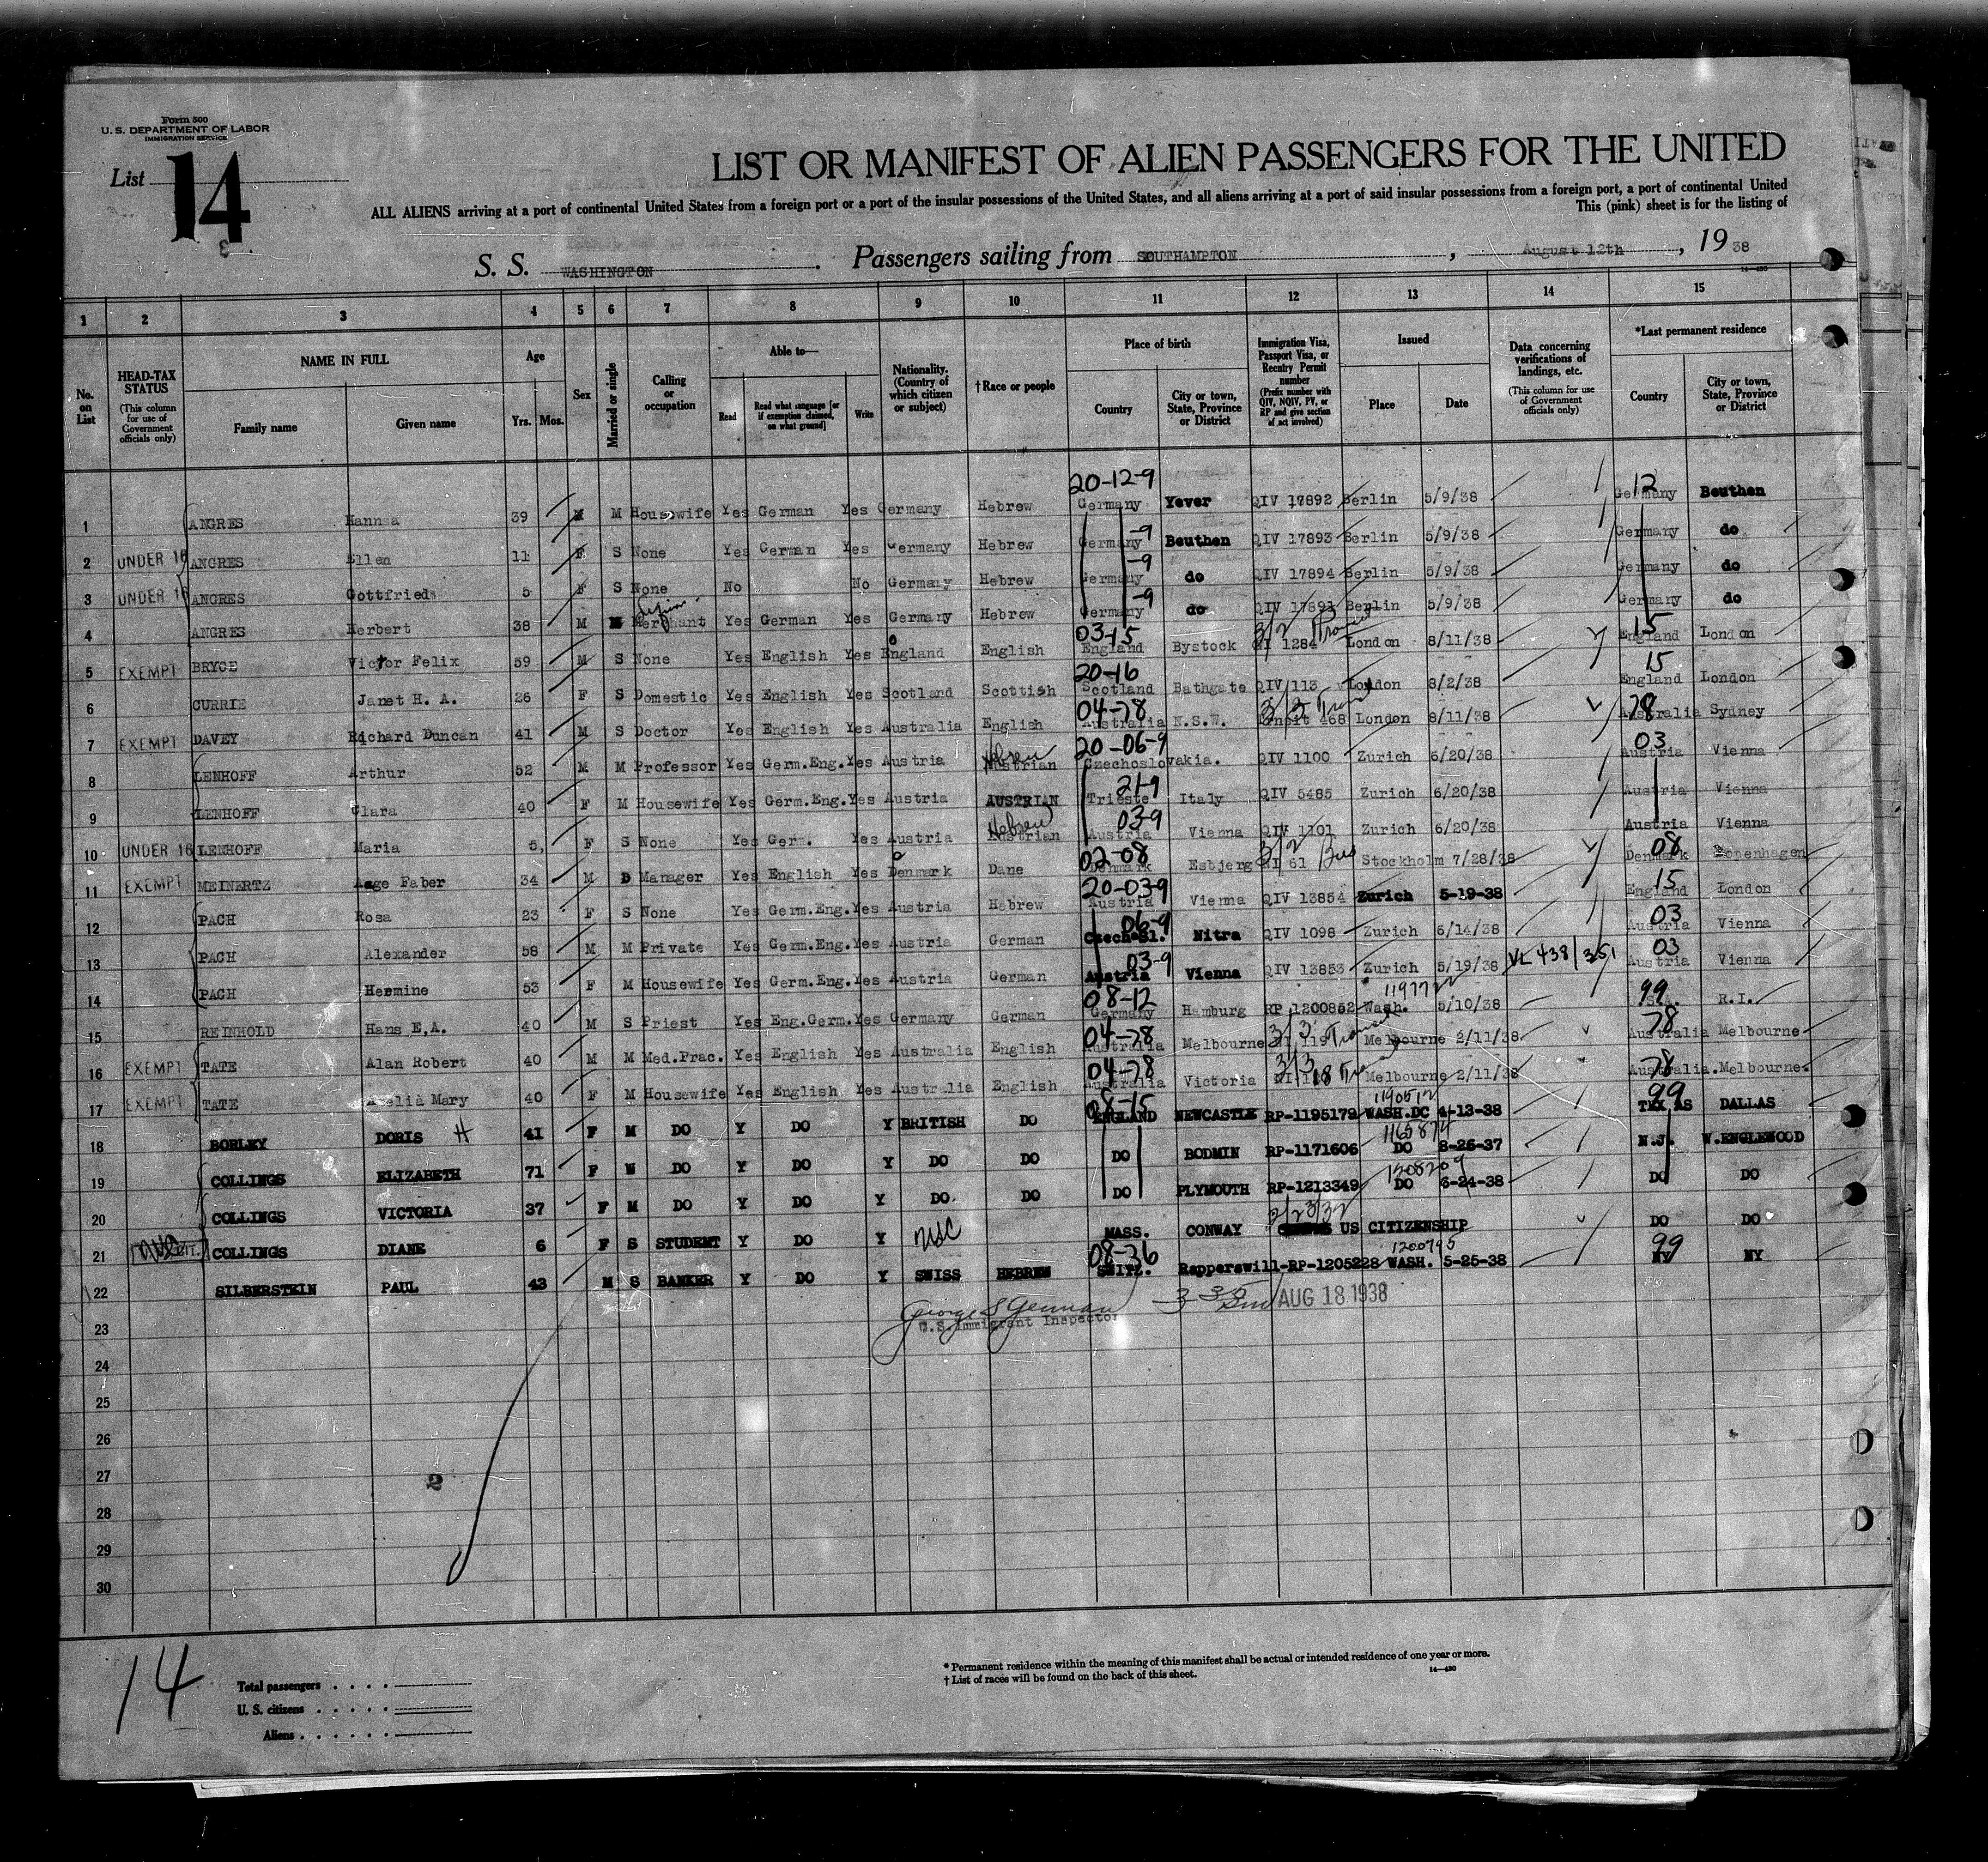 Form 500
U. S. DEPARTMENT OF LABOR
IMMIGRATION SERVICE
List 14
3
LIST OR MANIFEST OF ALIEN PASSENGERS FOR THE UNITED
ALL ALIENS arriving at a port of continental United States from a foreign port or a port of the insular possessions of the United States, and all aliens arriving at a port of said insular possessions from a foreign port, a port of continental United
This (pink) sheet is for the listing of
S. S. WASHINGTON. Passengers sailing from SOUTHAMPTON, August 12th, 19 38
14-430
1 2 3 4 5 6 7 8 9 10 11 12 13 14 15
No. on List
HEAD-TAX STATUS (This column for use of Government officials only)
NAME IN FULL
Family name Given name
Age
Yrs. Mos.
Sex
Married or single
Calling or occupation
Able to—
Read
Read what language [or if exemption claimed, on what ground]
Write
Nationality. (Country of which citizen or subject)
†Race or people
Place of birth
Country
City or town, State, Province or District
Immigration Visa, Passport Visa, or Reentry Permit number (Prefix number with QIV, NQIV, PV, or RP and give section of act involved)
Issued
Place Date
Data concerning verifications of landings, etc. (This column for use of Government officials only)
*Last permanent residence
Country
City or town, State, Province or District
20-12-9 12
1 ANGRES Hannsa 39 M Housewife Yes German Yes Germany Hebrew Germany Yever QIV 17892 Berlin 5/9/38 Germany Beuthen
-9
2 UNDER 16 ANGRES Ellen 11 F S None Yes German Yes Germany Hebrew Germany Beuthen QIV 17893 Berlin 5/9/38 Germany do
-9
3 UNDER 16 ANGRES Gottfried 5 F S None No No Germany Hebrew Germany do QIV 17894 Berlin 5/9/38 Germany do
-9
4 ANGRES Herbert 38 M Merchant Yes German Yes Germany Hebrew Germany do QIV 17891 Berlin 5/9/38 Germany do
03-15 3/2 15
5 EXEMPT BRYCE Victor Felix 59 M S None Yes English Yes England English England Bystock 1284 London 8/11/38 England London
20-16 15
6 CURRIE Janet H. A. 26 F S Domestic Yes English Yes Scotland Scottish Scotland Bathgate QIV 113 London 8/2/38 England London
04-78 3/3 78
7 EXEMPT DAVEY Richard Duncan 41 M S Doctor Yes English Yes Australia English Australia N.S.W. 468 London 8/11/38 Australia Sydney
Hebrew 20-06-9 03
8 LENHOFF Arthur 52 M M Professor Yes Germ.Eng. Yes Austria Austrian Czechoslovakia. QIV 1100 Zurich 6/20/38 Austria Vienna
21-9
9 LENHOFF Clara 40 F M Housewife Yes Germ.Eng. Yes Austria AUSTRIAN Trieste Italy QIV 5485 Zurich 6/20/38 Austria Vienna
Hebrew 03-9
10 UNDER 16 LENHOFF Maria 5 F S None Yes Germ. Yes Austria Austrian Austria Vienna QIV 1101 Zurich 6/20/38 Austria Vienna
02-08 3/2 Bus 08
11 EXEMPT MEINERTZ Aage Faber 34 M D Manager Yes English Yes Denmark Dane Denmark Esbjerg 61 Stockholm 7/28/38 Denmark Copenhagen
20-03-9 15
12 PACH Rosa 23 F S None Yes Germ.Eng. Yes Austria Hebrew Austria Vienna QIV 13854 Zurich 5-19-38 England London
06-9 03
13 PACH Alexander 58 M M Private Yes Germ.Eng. Yes Austria German Czech-Sl. Nitra QIV 1098 Zurich 6/14/38 Austria Vienna
03-9 03
14 PACH Hermine 53 F M Housewife Yes Germ.Eng. Yes Austria German Austria Vienna QIV 13853 Zurich 5/19/38 VL 438/351 Austria Vienna
08-12 99
15 REINHOLD Hans E.A. 40 M S Priest Yes Eng.Germ. Yes Germany German Germany Hamburg RP 1200852 Wash. 5/10/38 R.I.
04-78 3/3 Transit 78
16 EXEMPT TATE Alan Robert 40 M M Med.Prac. Yes English Yes Australia English Australia Melbourne 119 Melbourne 2/11/38 Australia Melbourne
04-78 3/3 78
17 EXEMPT TATE Amelia Mary 40 F M Housewife Yes English Yes Australia English Australia Victoria 118 Melbourne 2/11/38 Australia. Melbourne.
08-15 1190512 99
18 BORLEY DORIS H 41 F M DO Y DO Y BRITISH DO ENGLAND NEWCASTLE RP-1195179 WASH.DC 4-13-38 TEXAS DALLAS
1165874
19 COLLINGS ELIZABETH 71 F W DO Y DO Y DO DO DO BODMIN RP-1171606 DO 8-26-37 N.J. W.ENGLEWOOD
1208209
20 COLLINGS VICTORIA 37 F M DO Y DO Y DO. DO DO PLYMOUTH RP-1213349 DO 6-24-38 DO DO
2/23/32
21 COLLINGS DIANE 6 F S STUDENT Y DO Y USC MASS. CONWAY US CITIZENSHIP DO DO
08-36 1200795 99
22 SILBERSTEIN PAUL 43 M S BANKER Y DO Y SWISS HEBREW SWITZ. Rapperswill-RP-1205228 WASH. 5-25-38 NY NY
George S German AUG 18 1938
U.S. Immigrant Inspector
23
24
25
26
27
2
28
29
30
14
Total passengers
U. S. citizens
Aliens
* Permanent residence within the meaning of this manifest shall be actual or intended residence of one year or more.
† List of races will be found on the back of this sheet.
14-430